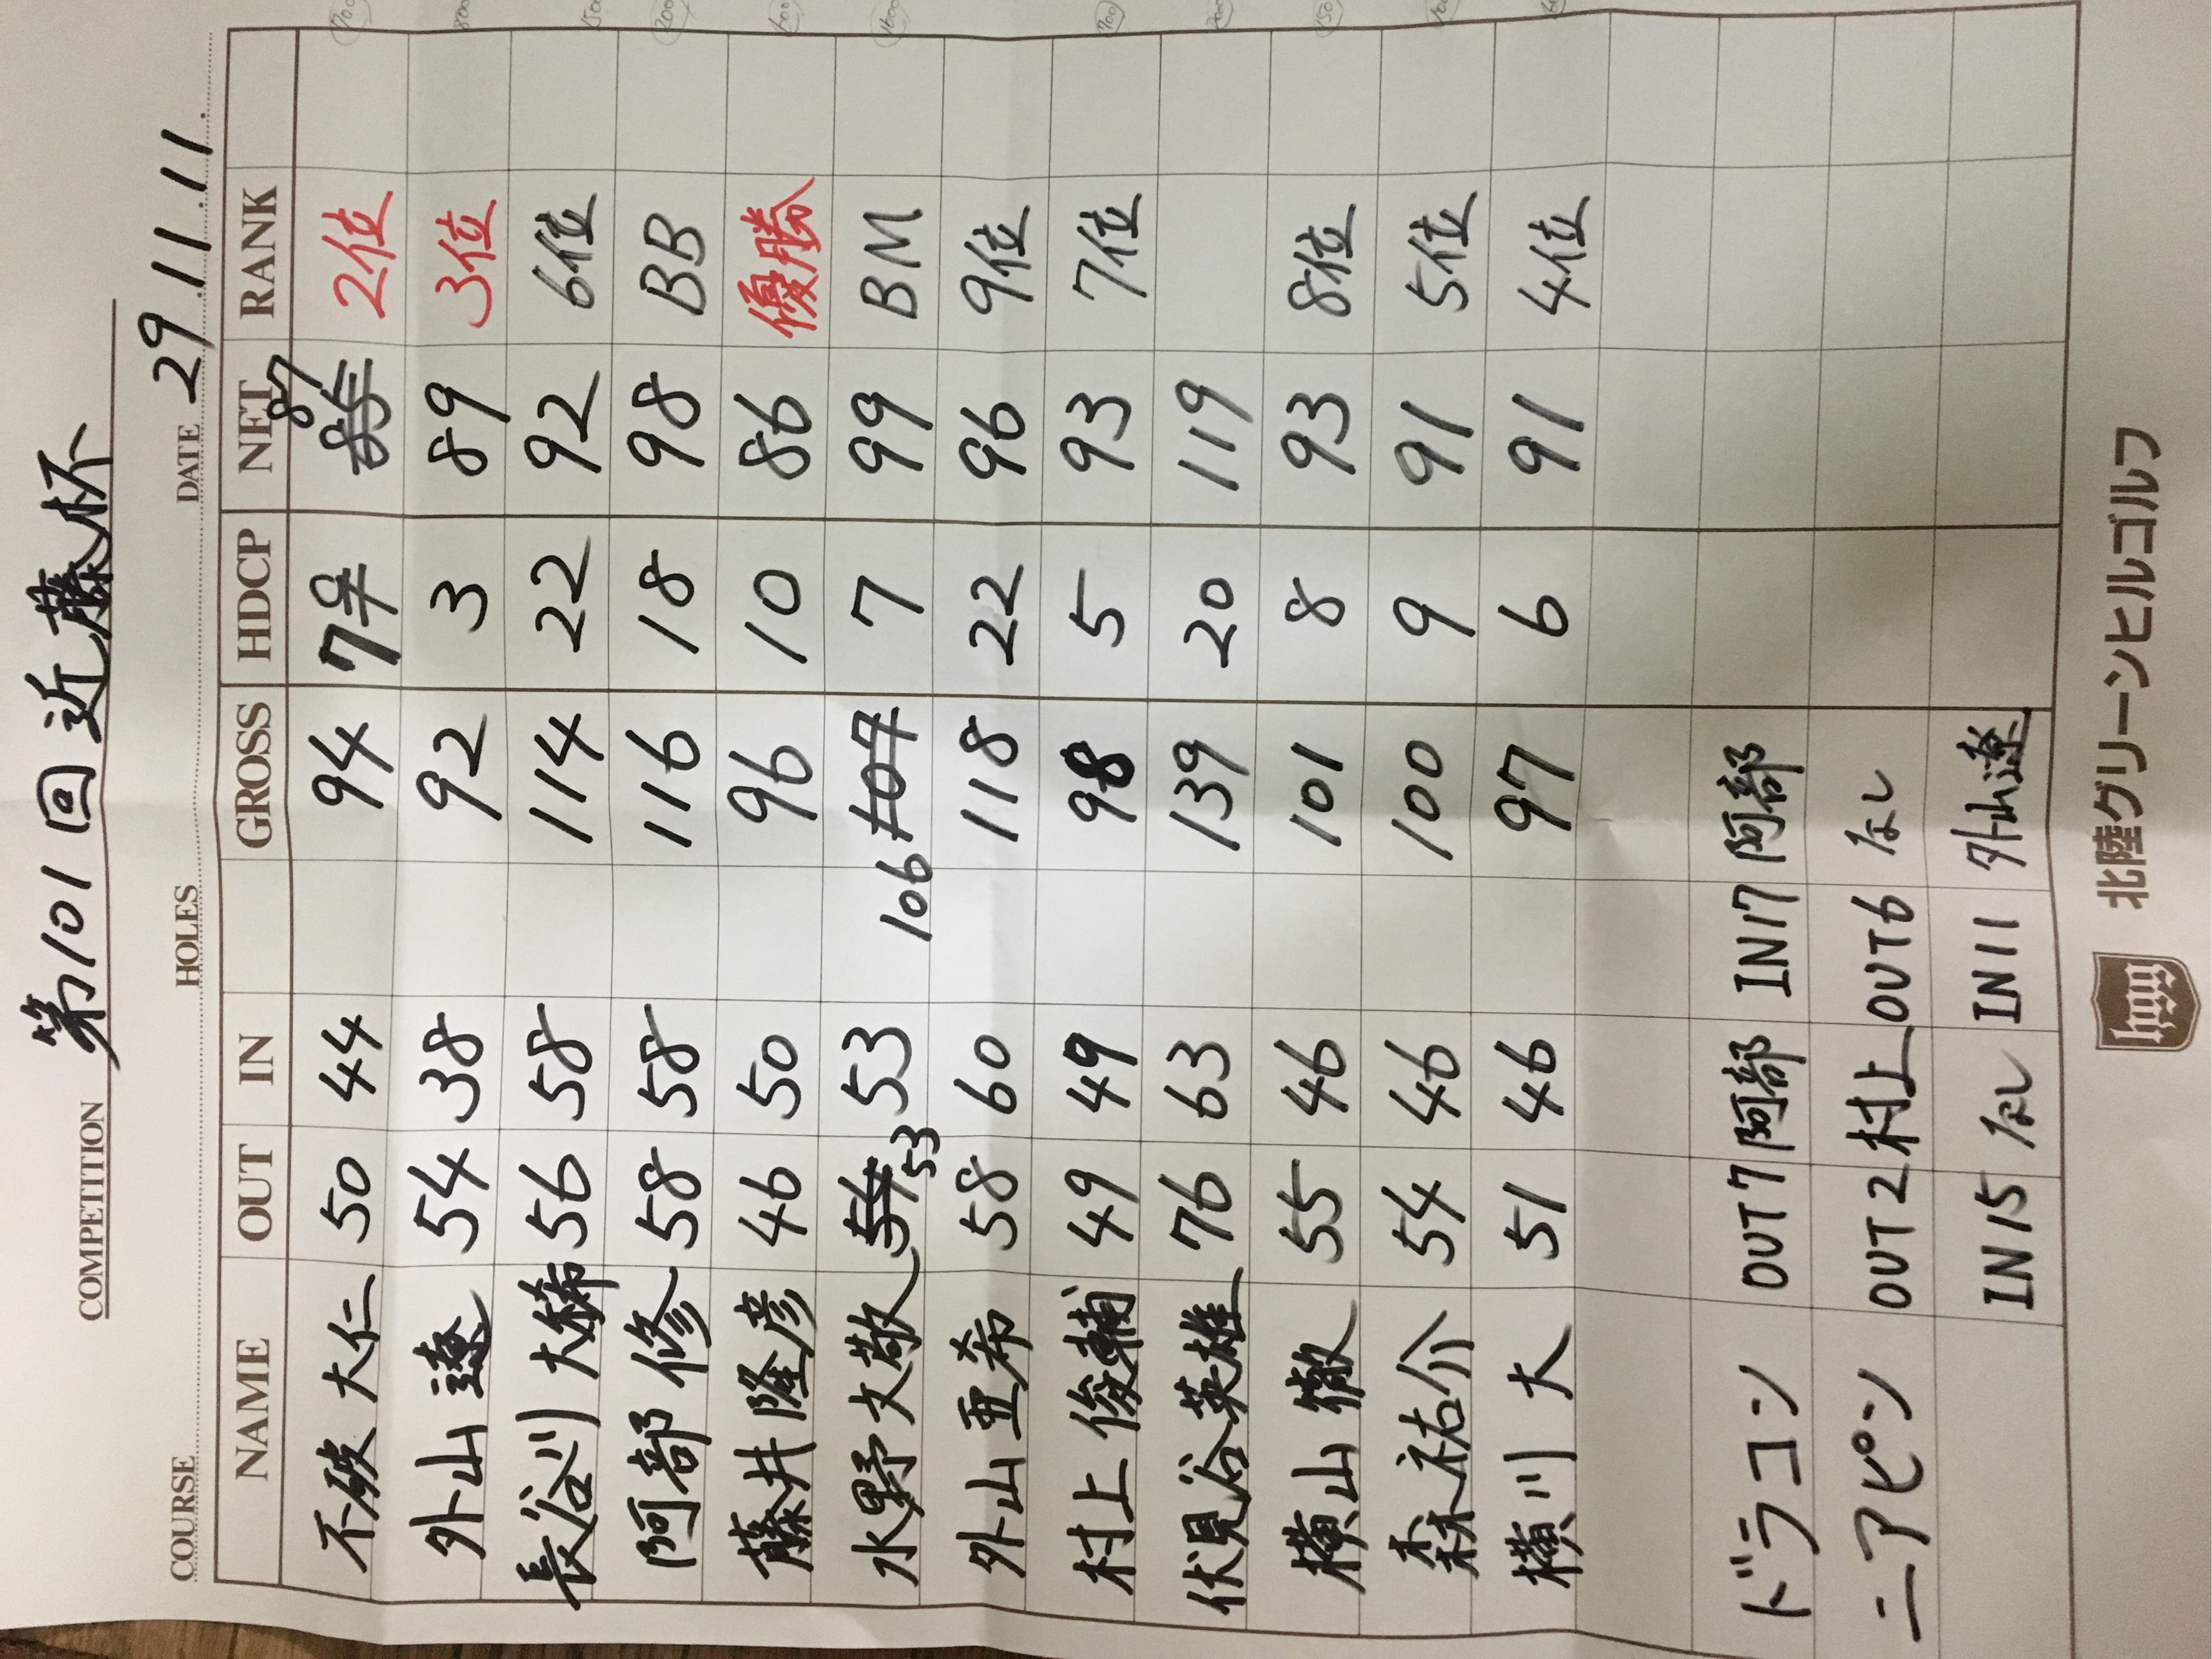 COMPETITION 第101回 近藤杯
COURSE HOLES DATE 29.11.11.
NAME OUT IN GROSS HDCP NET RANK
不破 大仁 50 44 94 7 87 2位
外山 遼 54 38 92 3 89 3位
長谷川 大 56 58 114 22 92 6位
阿部 修 58 58 116 18 98 BB
藤井 隆彦 46 50 96 10 86 優勝
水野 文敬 53 53 106 107 7 99 BM
外山 亜希 58 60 118 22 96 9位
村上 俊輔 49 49 98 5 93 7位
伏見谷 英雄 76 63 139 20 119
横山 徹 55 46 101 8 93 8位
森 祐介 54 46 100 9 91 5位
横川 大 51 46 97 6 91 4位
ドラコン OUT7 阿部 IN17 阿部
ニアピン OUT2 村上 OUT6 なし
IN15 なし IN11 外山遼
北陸グリーンヒルゴルフ